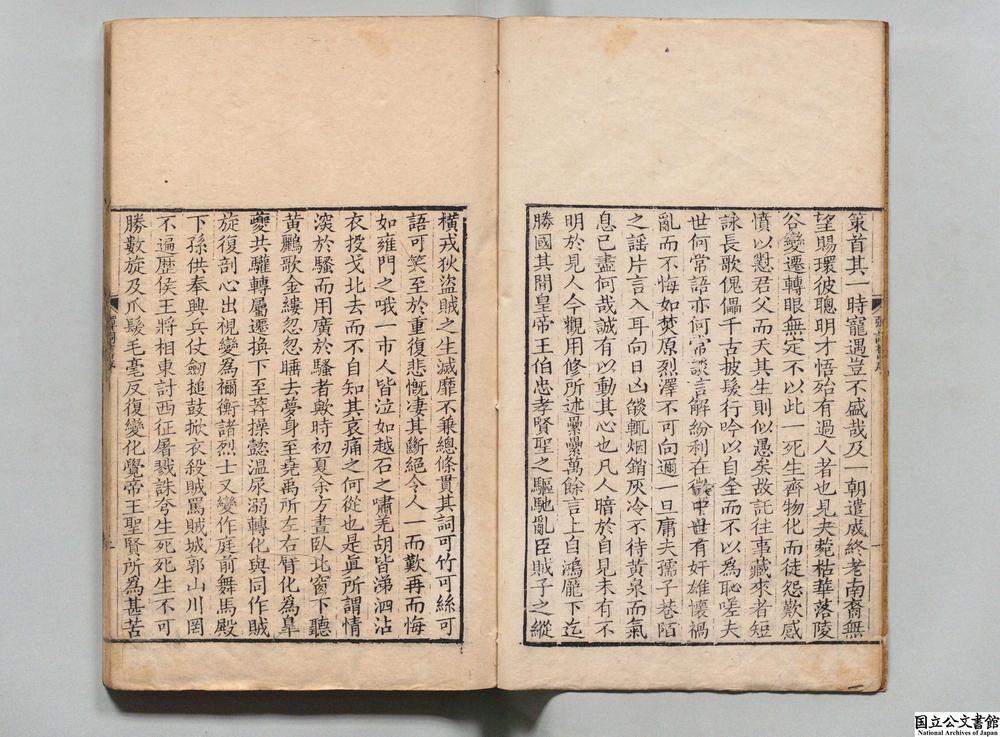 策首其一時寵遇豈不盛哉及一朝遣戍終老南裔無
望賜環彼聰明才悟殆有過人者也見夫菀枯華落陵
谷變遷轉眼無定不以此一死生齊物化而徒怨歎感
憤以懟君父而天其生則似愚矣故託往事藏來者短
詠長歌傀儡千古披髮行吟以自全而不以爲恥嗟夫
世何常語亦何常談言解紛利在微中世有奸雄懷禍
亂而不悔如焚原烈澤不可向邇一旦庸夫孺子巷陌
之謠片言入耳向日凶燄輒烟銷灰冷不待黃泉而氣
息已盡何哉誠有以動其心也凡人暗於自見未有不
明於見人今觀用修所述纍纍萬餘言上自鴻龎下迄
勝國其閒皇帝王伯忠孝賢聖之驅馳亂臣賊子之縱
橫戎狄盜賊之生滅靡不兼總條貫其詞可竹可絲可
語可笑至於重復悲慨凄其斷絕令人一而歎再而悔
如雍門之哦一市人皆泣如越石之嘯羌胡皆涕泗沾
衣投戈北去而不自知其哀痛之何從也是眞所謂情
深於騷而用廣於騷者歟時初夏余方晝臥北窗下聽
黃鸝歌金縷忽忽聃去夢身至堯禹所左右臂化爲臯
夔共驩轉屬遷換下至莽操懿温尿溺轉化與同作賊
旋復剖心出視變爲禰衡諸烈士又變作庭前舞馬殿
下孫供奉興兵仗劒搥鼓掀衣殺賊罵賊城郭山川罔
不遍歷侯王將相東討西征屠戮誅夸生死死生不可
勝數旋及爪髮毛毫反復變化覺帝王聖賢所爲甚苦
国立公文書館
National Archives of Japan